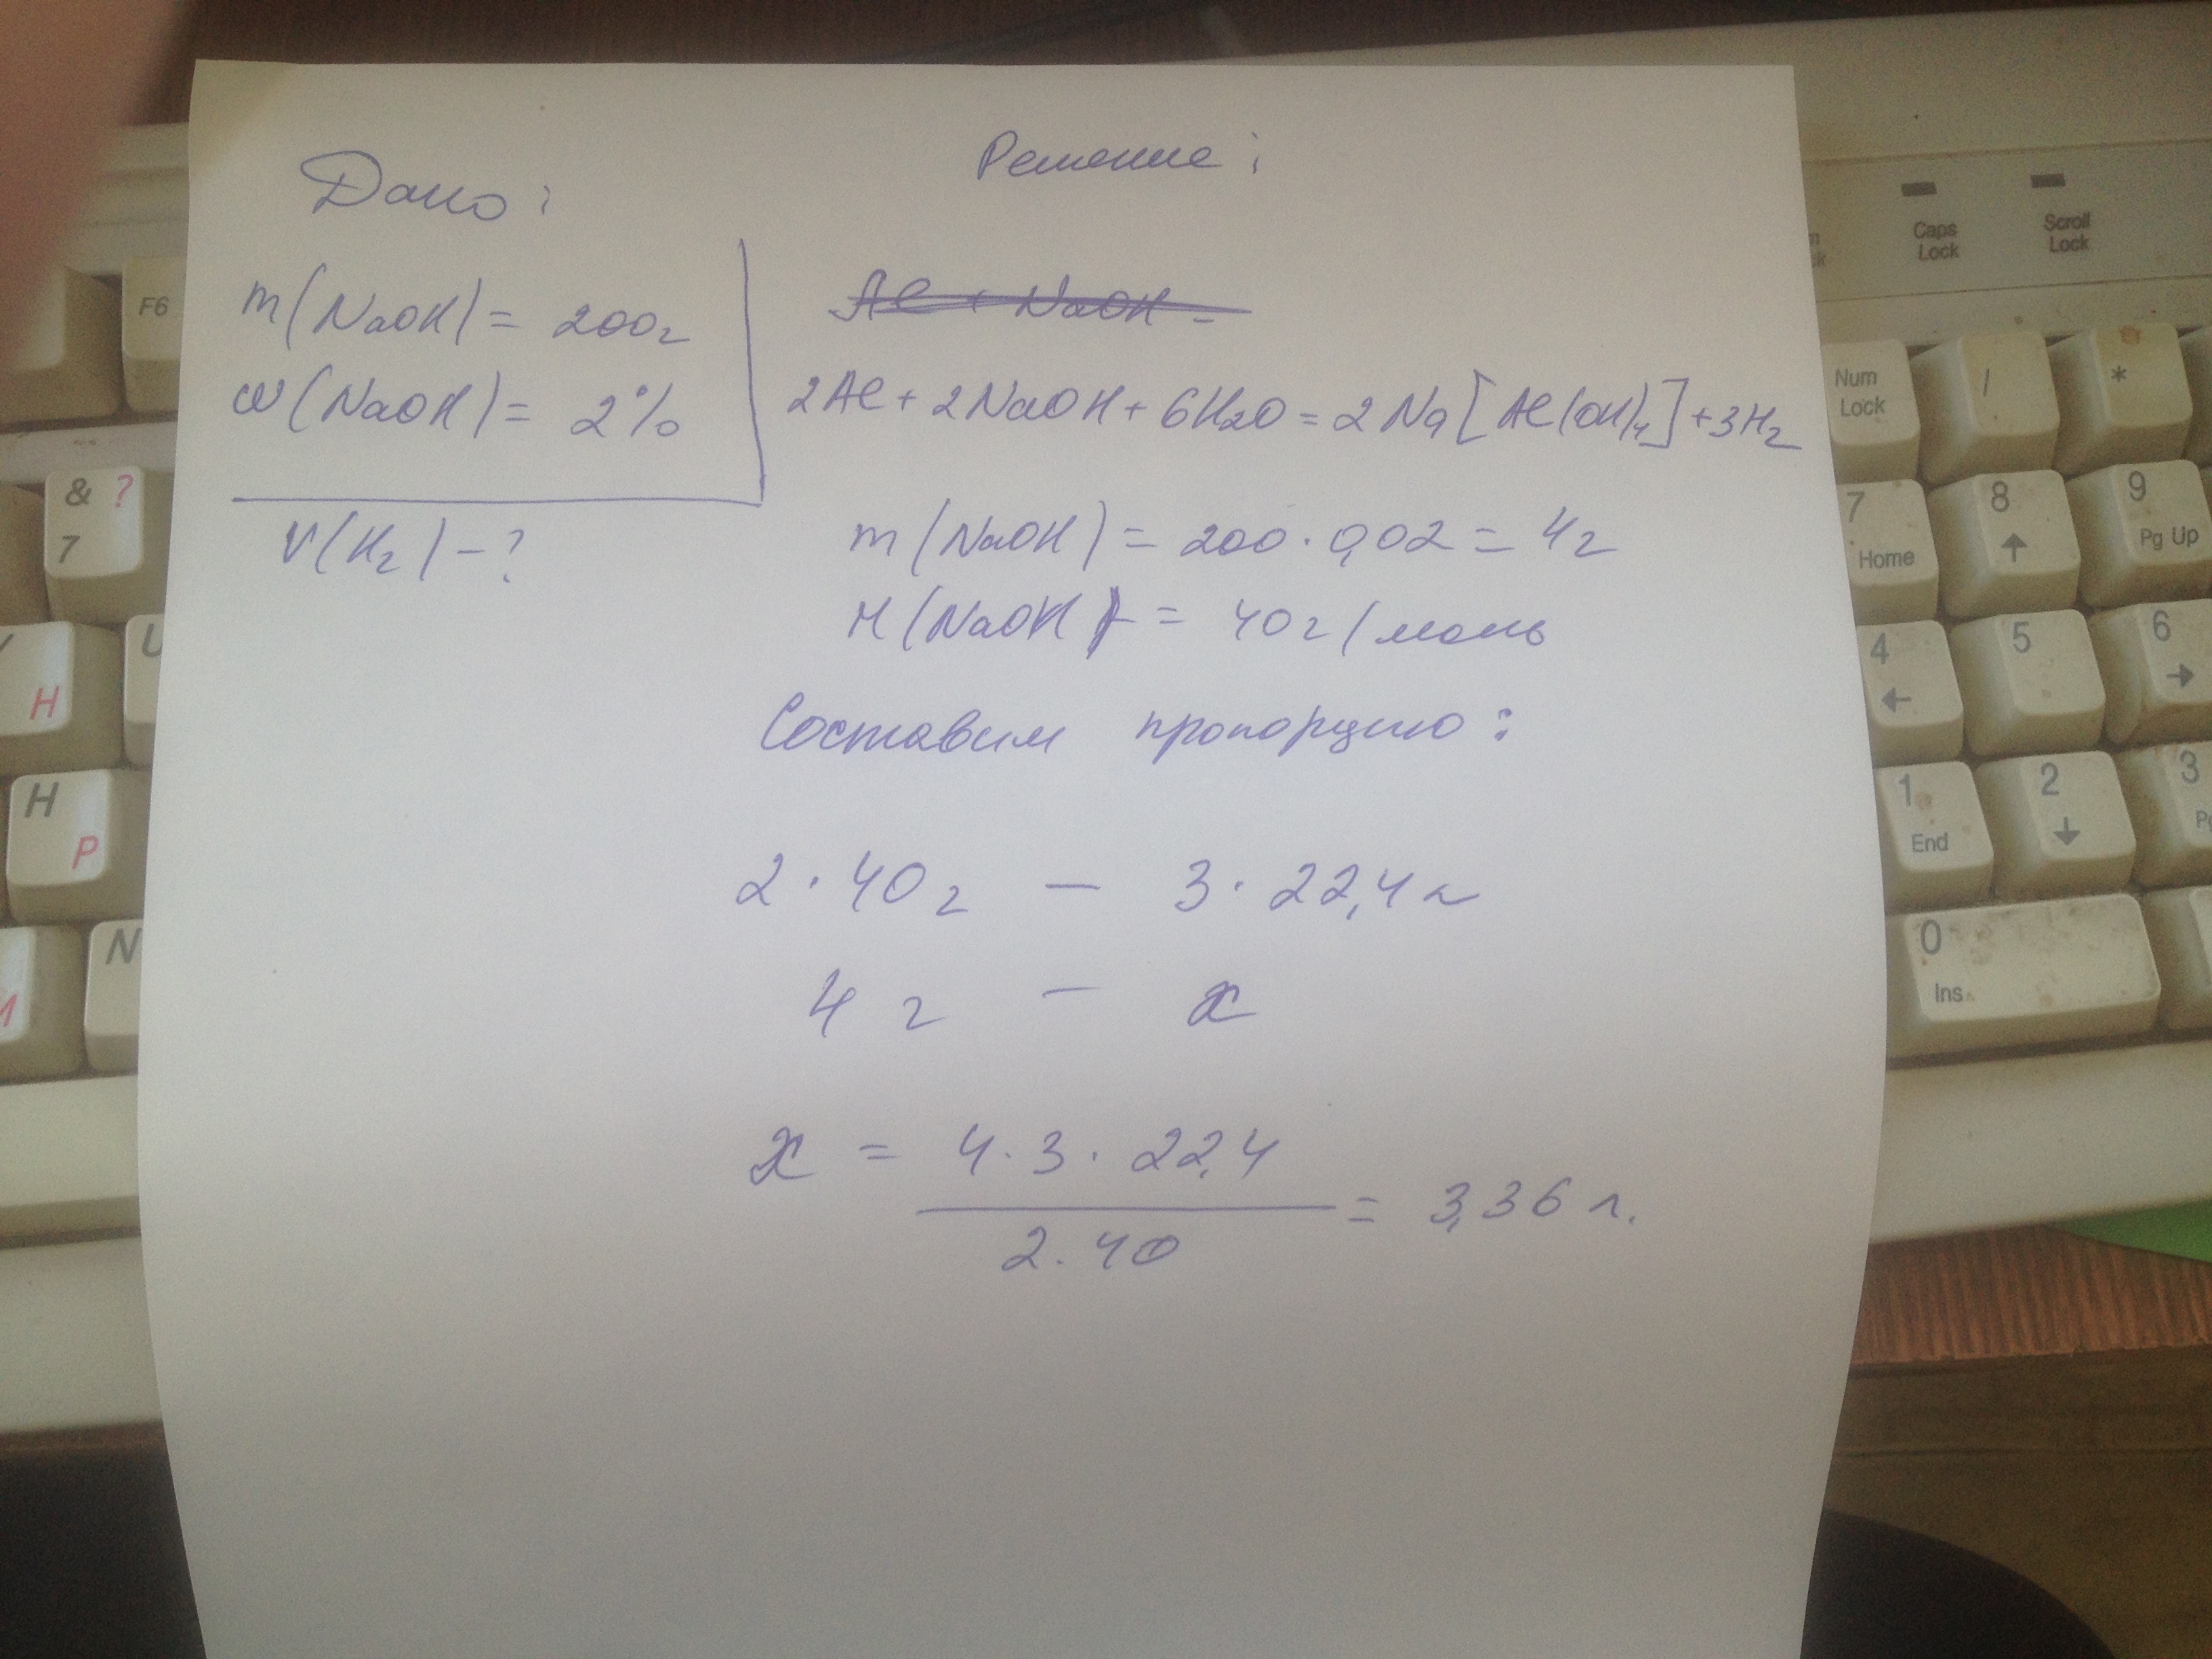 Дано:
m(NaOH) = 200г
ω(NaOH) = 2%
V(H2) - ?
Решение:
Al + NaOH =
2Al + 2NaOH + 6H2O = 2Na[Al(OH)4] + 3H2
m(NaOH) = 200·0,02 = 4г
M(NaOH) = 40г/моль
Составим пропорцию:
2·40г — 3·22,4л
4г — x
x = 4·3·22,4 / 2·40 = 3,36 л.
F6
& ?
7
H
U
H
P
N
Caps
Lock
Scroll
Lock
Num
Lock
/
*
7
Home
8
↑
9
Pg Up
4
←
5
6
→
1
End
2
↓
3
0
Ins